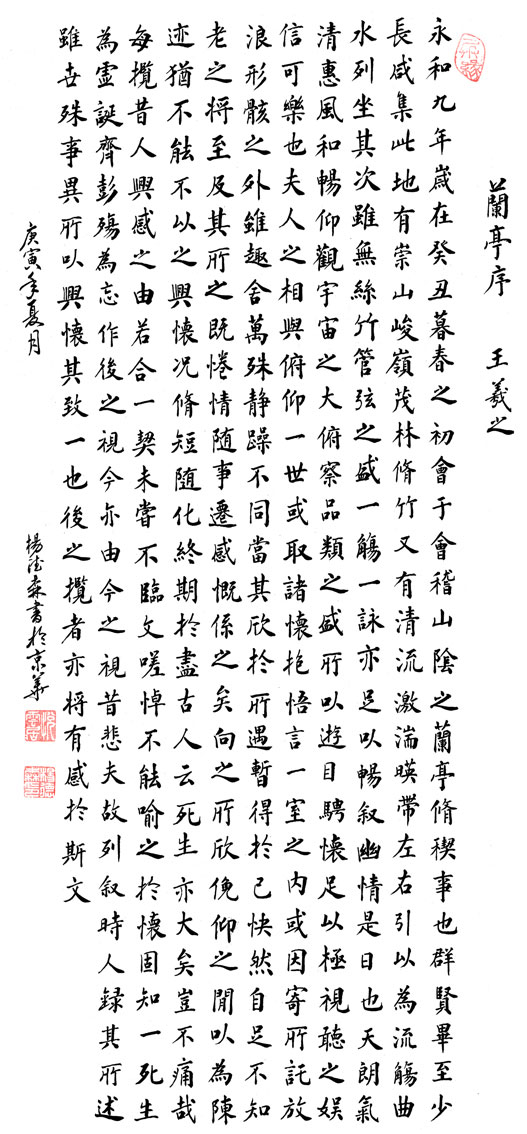 蘭亭序 王羲之
永和九年歲在癸丑暮春之初會于會稽山陰之蘭亭脩稧事也群賢畢至少
長咸集此地有崇山峻嶺茂林脩竹又有清流激湍暎帶左右引以為流觴曲
水列坐其次雖無絲竹管弦之盛一觴一詠亦足以暢叙幽情是日也天朗氣
清惠風和暢仰觀宇宙之大俯察品類之盛所以遊目騁懷足以極視聽之娛
信可樂也夫人之相與俯仰一世或取諸懷抱悟言一室之内或因寄所託放
浪形骸之外雖趣舍萬殊静躁不同當其欣於所遇暫得於己快然自足不知
老之将至及其所之既惓情随事遷感慨係之矣向之所欣俛仰之閒以為陳
迹猶不能不以之興懷况脩短随化終期於盡古人云死生亦大矣豈不痛哉
每攬昔人興感之由若合一契未嘗不臨文嗟悼不能喻之於懷固知一死生
為虛誕齊彭殤為忘作後之視今亦由今之視昔悲夫故列叙時人録其所述
雖世殊事異所以興懷其致一也後之攬者亦将有感於斯文
庚寅年夏月 楊德森書於京華